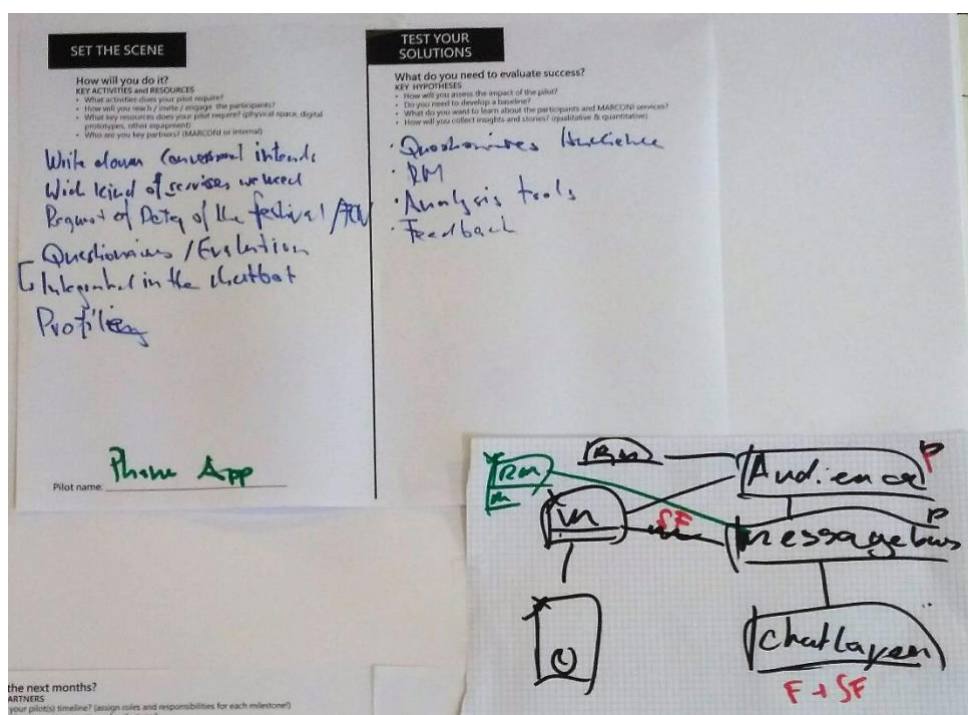 SET THE SCENE
How will you do it?
KEY ACTIVITIES and RESOURCES
• What activities does your pilot require?
• How will you reach / invite / engage the participants?
• What key resources does your pilot require? (physical space, digital
prototypes, other equipment)
• Who are you key partners? (MARCONI or internal)
Write down intends
kind of services we need
of the festival
Questionnires / Evalution
in the chatbot
Profiling
Phone App
Pilot name:
TEST YOUR
SOLUTIONS
What do you need to evaluate success?
KEY HYPOTHESES
• How will you assess the impact of the pilot?
• Do you need to develop a baseline?
• What do you want to learn about the participants and MARCONI services?
• How will you collect insights and stories? (qualitative & quantitative)
• Audience
• RM
• Analysis tools
• Feedback
RM
Audience
P
RM
in
SF
messagebus
P
chatlayer
F + SF
the next months?
ARTNERS
your pilot(s) timeline? (assign roles and responsibilities for each milestone!)